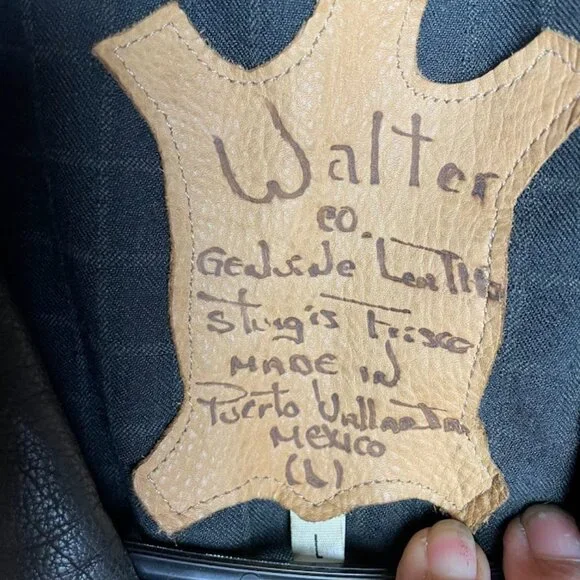 Walter
co.
Genuine Leather
Sturgis Frisco
MADE IN
Puerto Vallarta
MEXICO
(L)
L